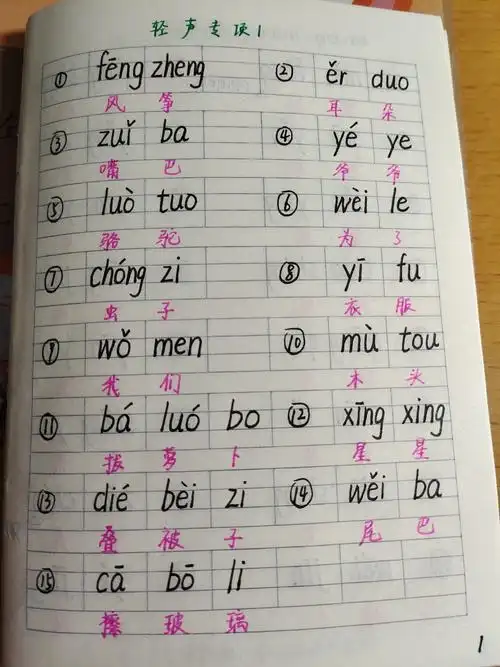 轻声专项1
① fēng zheng ② ěr duo
风 筝 耳 朵
③ zuǐ ba ④ yé ye
嘴 巴 爷 爷
⑤ luò tuo ⑥ wèi le
骆 驼 为 了
⑦ chóng zi ⑧ yī fu
虫 子 衣 服
⑨ wǒ men ⑩ mù tou
我 们 木 头
⑪ bá luó bo ⑫ xīng xing
拔 萝 卜 星 星
⑬ dié bèi zi ⑭ wěi ba
叠 被 子 尾 巴
⑮ cā bō li
擦 玻 璃
1